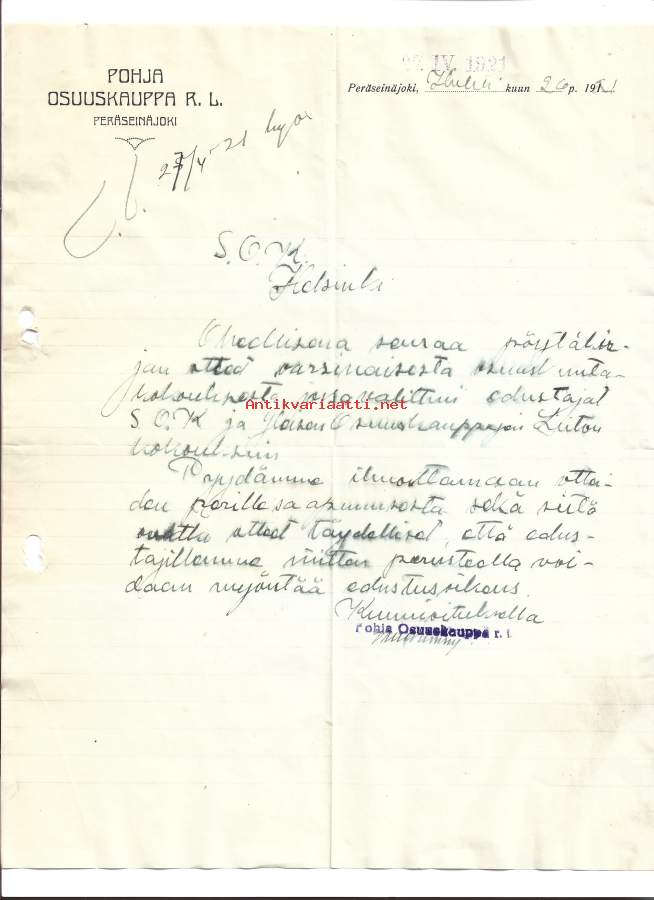 27. IV 1921
POHJA
OSUUSKAUPPA R. L.
PERÄSEINÄJOKI
Peräseinäjoki, Huhti kuun 26 p. 1921
27/4 21
S.O.K.
Helsinki
Oheellisena seuraa pöytäkir-
jan otteet varsinaisesta osuuskunta-
kokouksesta jossa valittiin edustajat
Antikvariaatti.net
S.O.K ja Yleisen Osuuskauppojen Liiton
kokouksiin
Pyydämme ilmoittamaan ottei-
den perille saapumisesta sekä siitä
ovatko otteet täydelliset, että edus-
tajillemme niitten perusteella voi-
daan myöntää edustusoikeus.
Kunnioituksella
Pohja Osuuskauppa r. l.